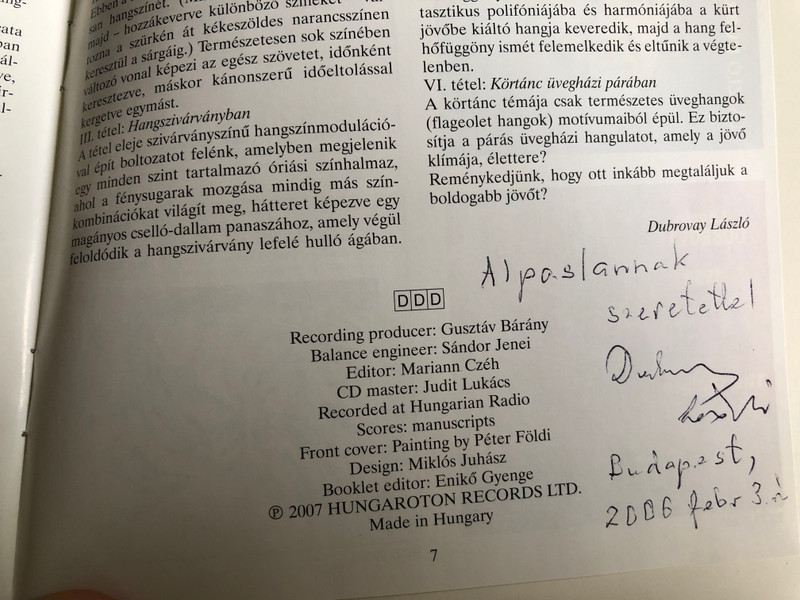 san hangszínét.
majd – hozzákeverve különböző színeket – vál-
tozna a szürkén át kékeszöldes narancsszínen
keresztül a sárgáig.) Természetesen sok színében
változó vonal képezi az egész szövetet, időnként
keresztezve, máskor kánonszerű időeltolással
kergetve egymást.
III. tétel: Hangszivárványban
A tétel eleje szivárványszínű hangszínmoduláció-
val épít boltozatot felénk, amelyben megjelenik
egy minden szint tartalmazó óriási színhalmaz,
ahol a fénysugarak mozgása mindig más szín-
kombinációkat világít meg, hátteret képezve egy
magányos cselló-dallam panaszához, amely végül
feloldódik a hangszivárvány lefelé hulló ágában.
tasztikus polifóniájába és harmóniájába a kürt
jövőbe kiáltó hangja keveredik, majd a hang fel-
hőfüggöny ismét felemelkedik és eltűnik a végte-
lenben.
VI. tétel: Körtánc üvegházi párában
A körtánc témája csak természetes üveghangok
(flageolet hangok) motívumaiból épül. Ez bizto-
sítja a párás üvegházi hangulatot, amely a jövő
klímája, élettere?
Reménykedjünk, hogy ott inkább megtaláljuk a
boldogabb jövőt?
Dubrovay László
Alpaslannak
szeretettel
Budapest,
2006 febr 3.
DDD
Recording producer: Gusztáv Bárány
Balance engineer: Sándor Jenei
Editor: Mariann Czéh
CD master: Judit Lukács
Recorded at Hungarian Radio
Scores: manuscripts
Front cover: Painting by Péter Földi
Design: Miklós Juhász
Booklet editor: Enikő Gyenge
℗ 2007 HUNGAROTON RECORDS LTD.
Made in Hungary
7